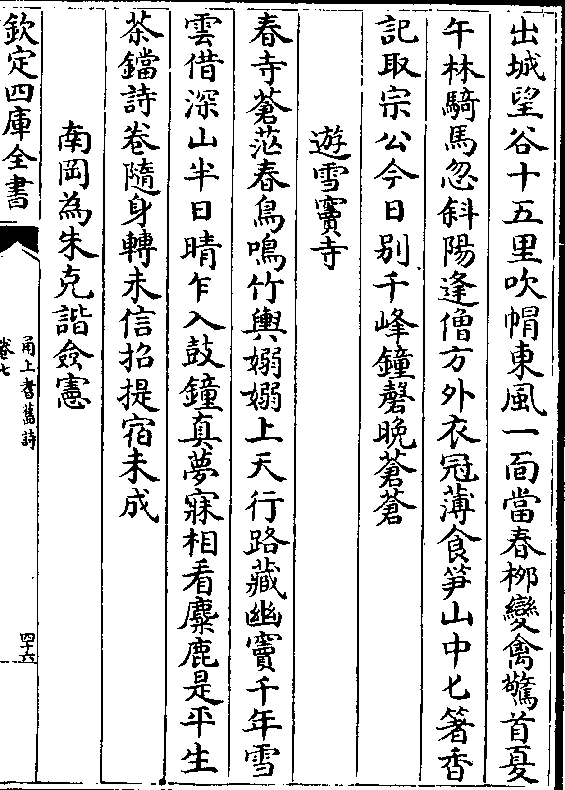 出城望谷十五里吹帽東風一面當春柳變禽驚首夏
午林騎馬忽斜陽逢僧方外衣冠薄食筍山中匕箸香
記取宗公今日别千峰鐘磬晩蒼蒼
遊雪竇寺
春寺蒼茫春鳥鳴竹輿嫋嫋上天行路藏幽竇千年雪
雲借深山半日晴乍入鼓鐘真夢寐相看麋鹿是平生
茶鐺詩卷隨身轉未信招提宿未成
南岡為朱克諧僉憲
欽定四庫全書
甬上耆舊詩
卷七
四十六